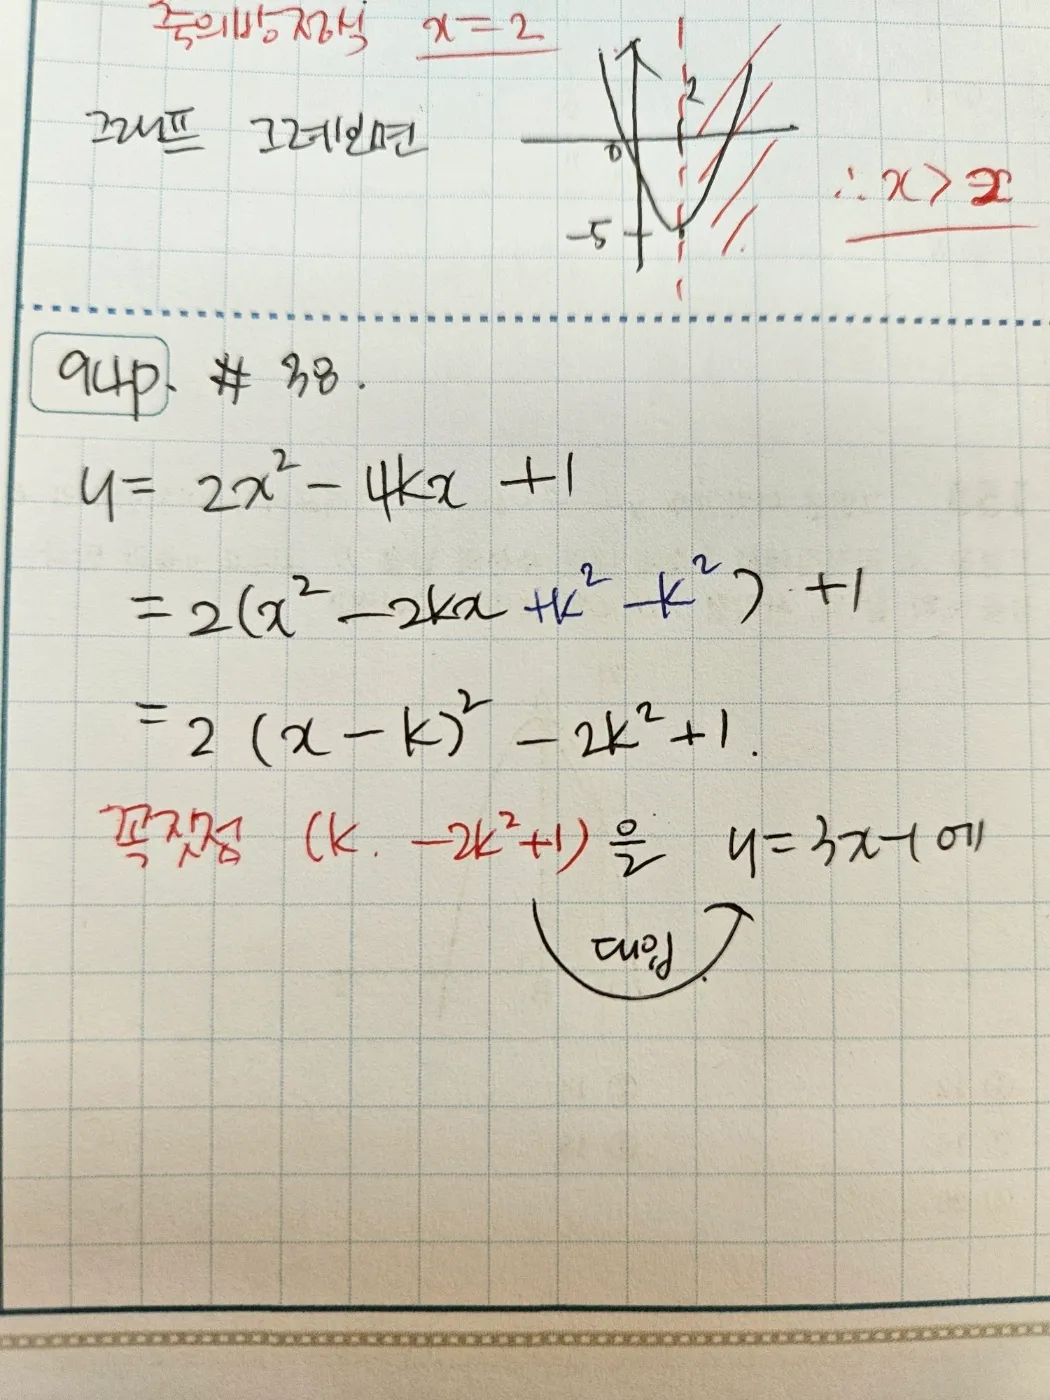 축의방정식 x=2
그래프 그려보면
2
0
-5
∴x>2
94p. # 38.
y= 2x² - 4kx +1
= 2(x² - 2kx +k² -k²) +1
= 2 (x-k)² - 2k²+1.
꼭짓점 (k, -2k²+1)을 y=3x-1에
대입